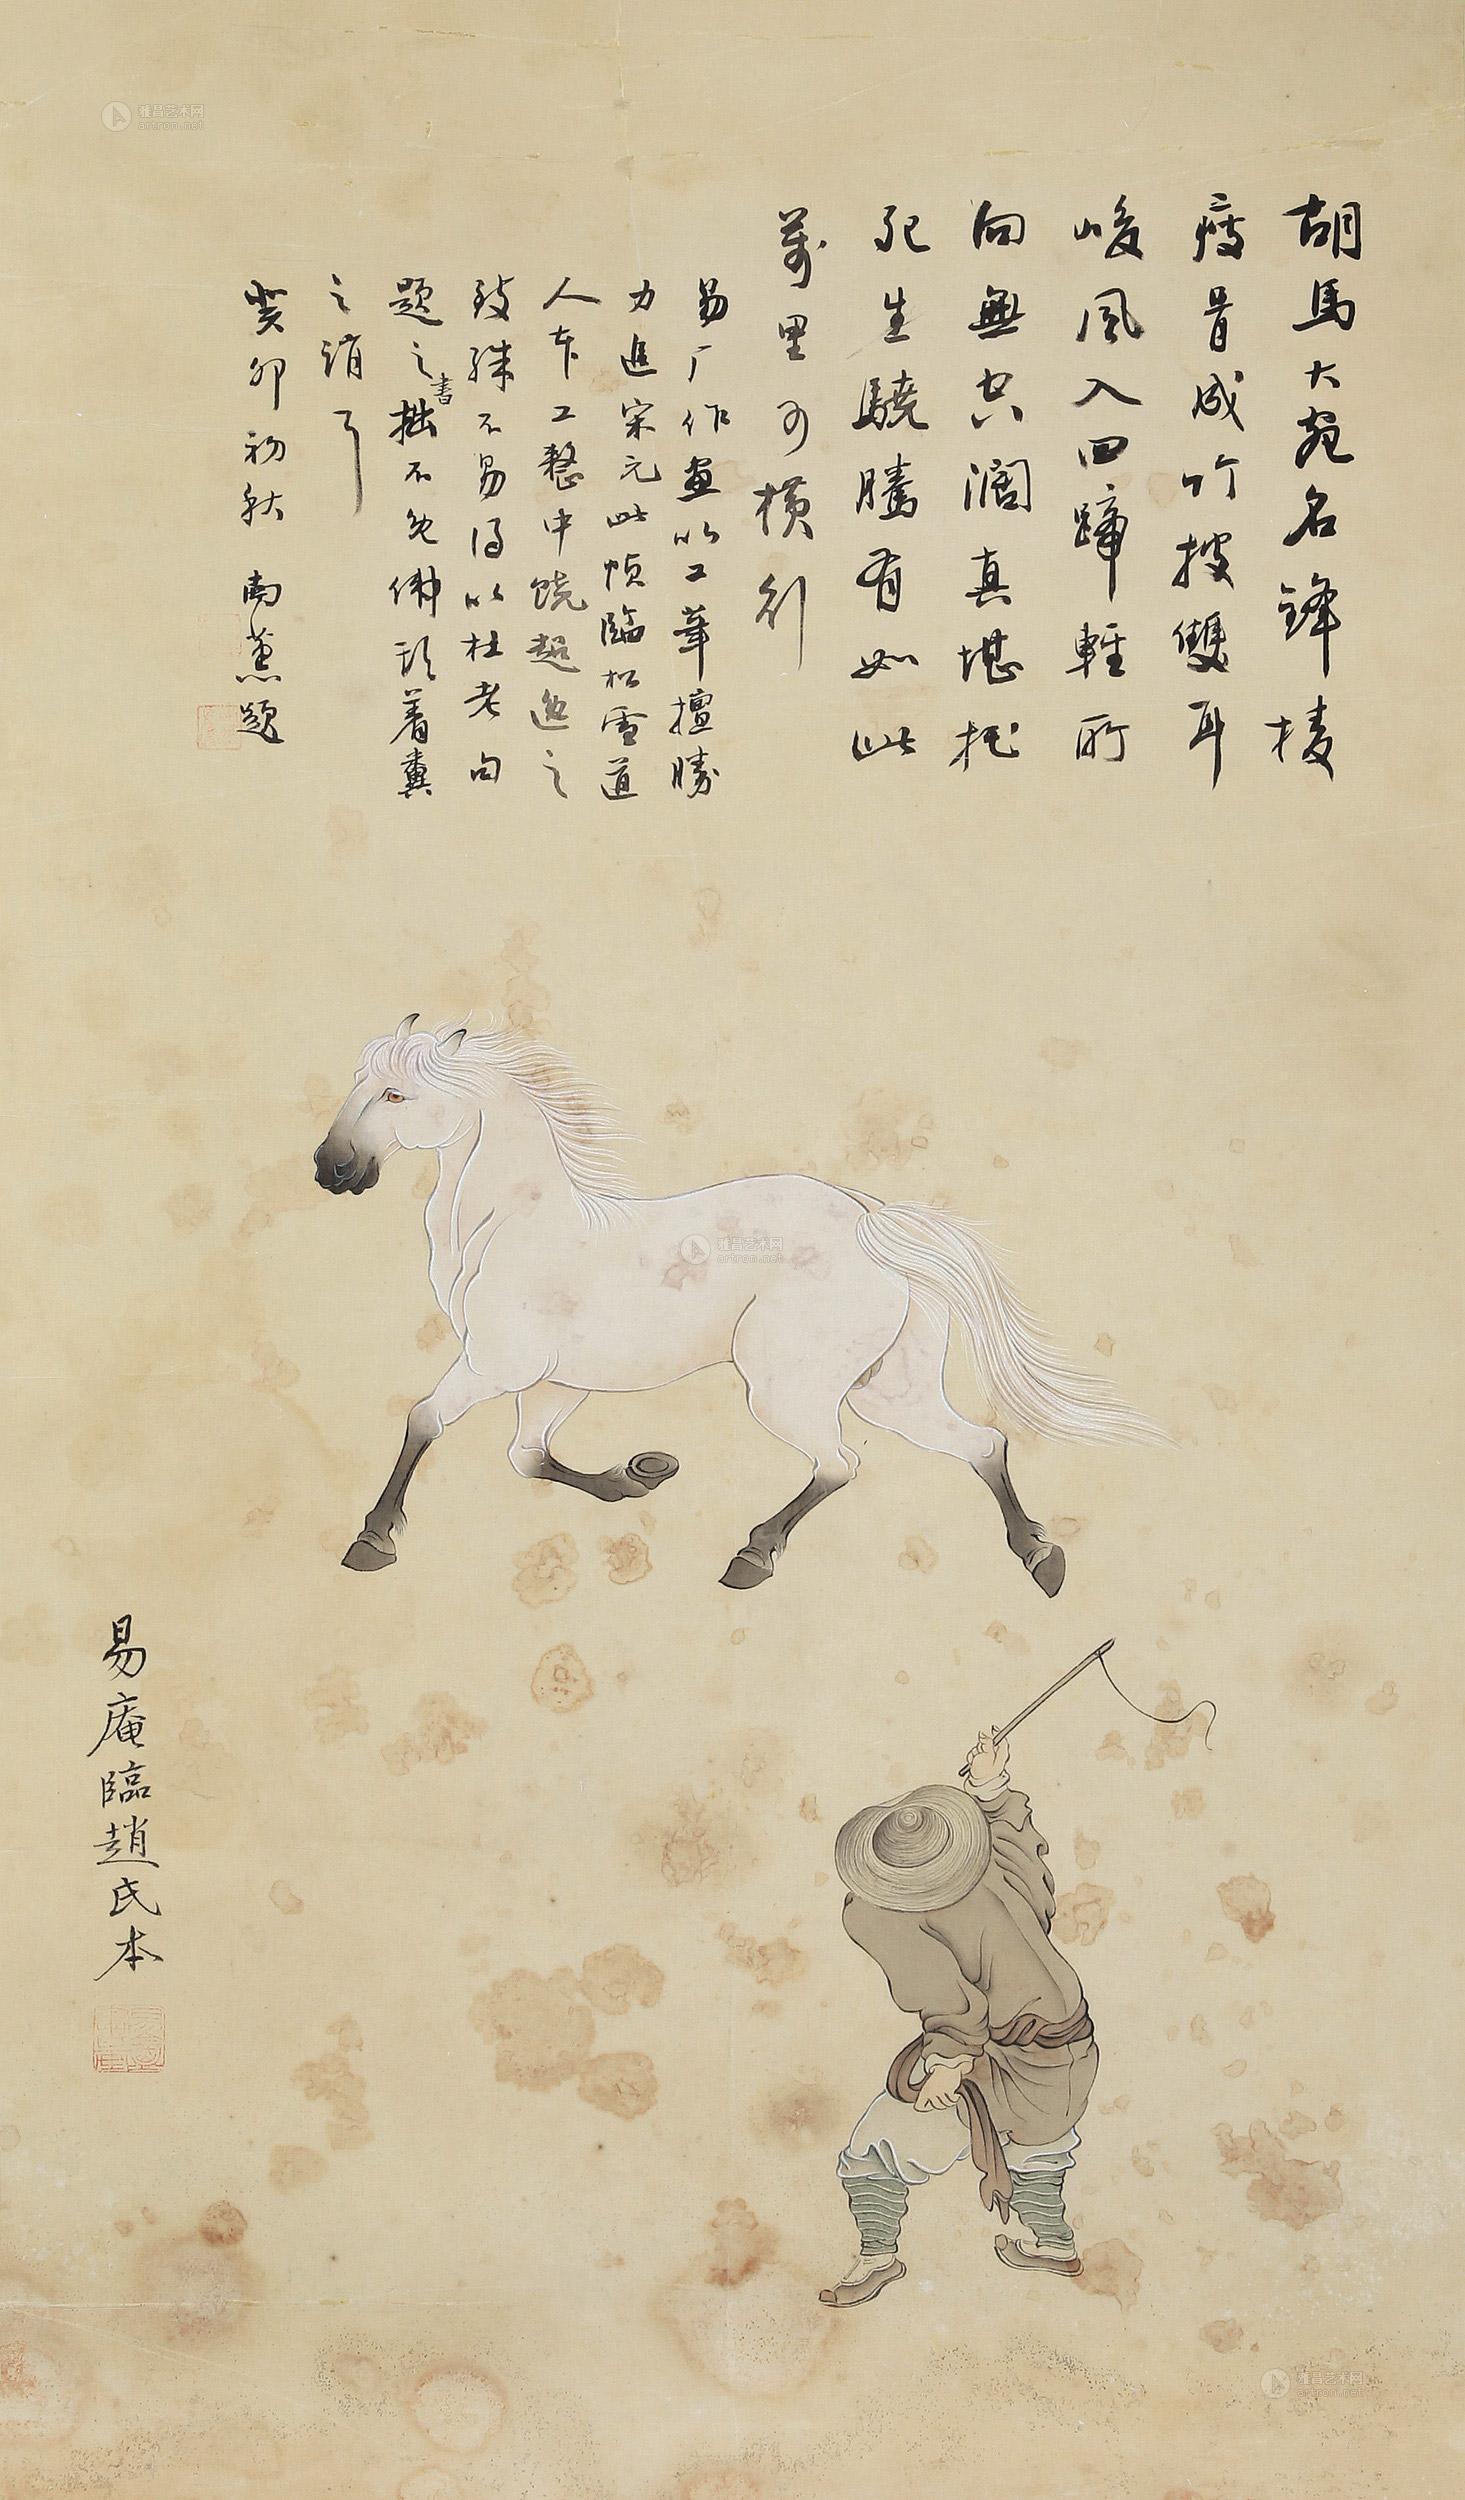 胡馬大宛名鋒棱
瘦骨成竹披雙耳
峻風入四蹄輕所
向無空濶真堪托
死生驍騰有如此
萬里可橫行
易广作畫以工筆擅勝
力追宋元此幀臨松雪道
人本工整中饒超逸之
致殊不易得以杜老句
題之書拙不免佛頭着糞
之誚耳
癸卯初秋 南薰題
易庵臨趙氏本
雅昌艺术网
artron.net
雅昌艺术网
artron.net
雅昌艺术网
artron.net